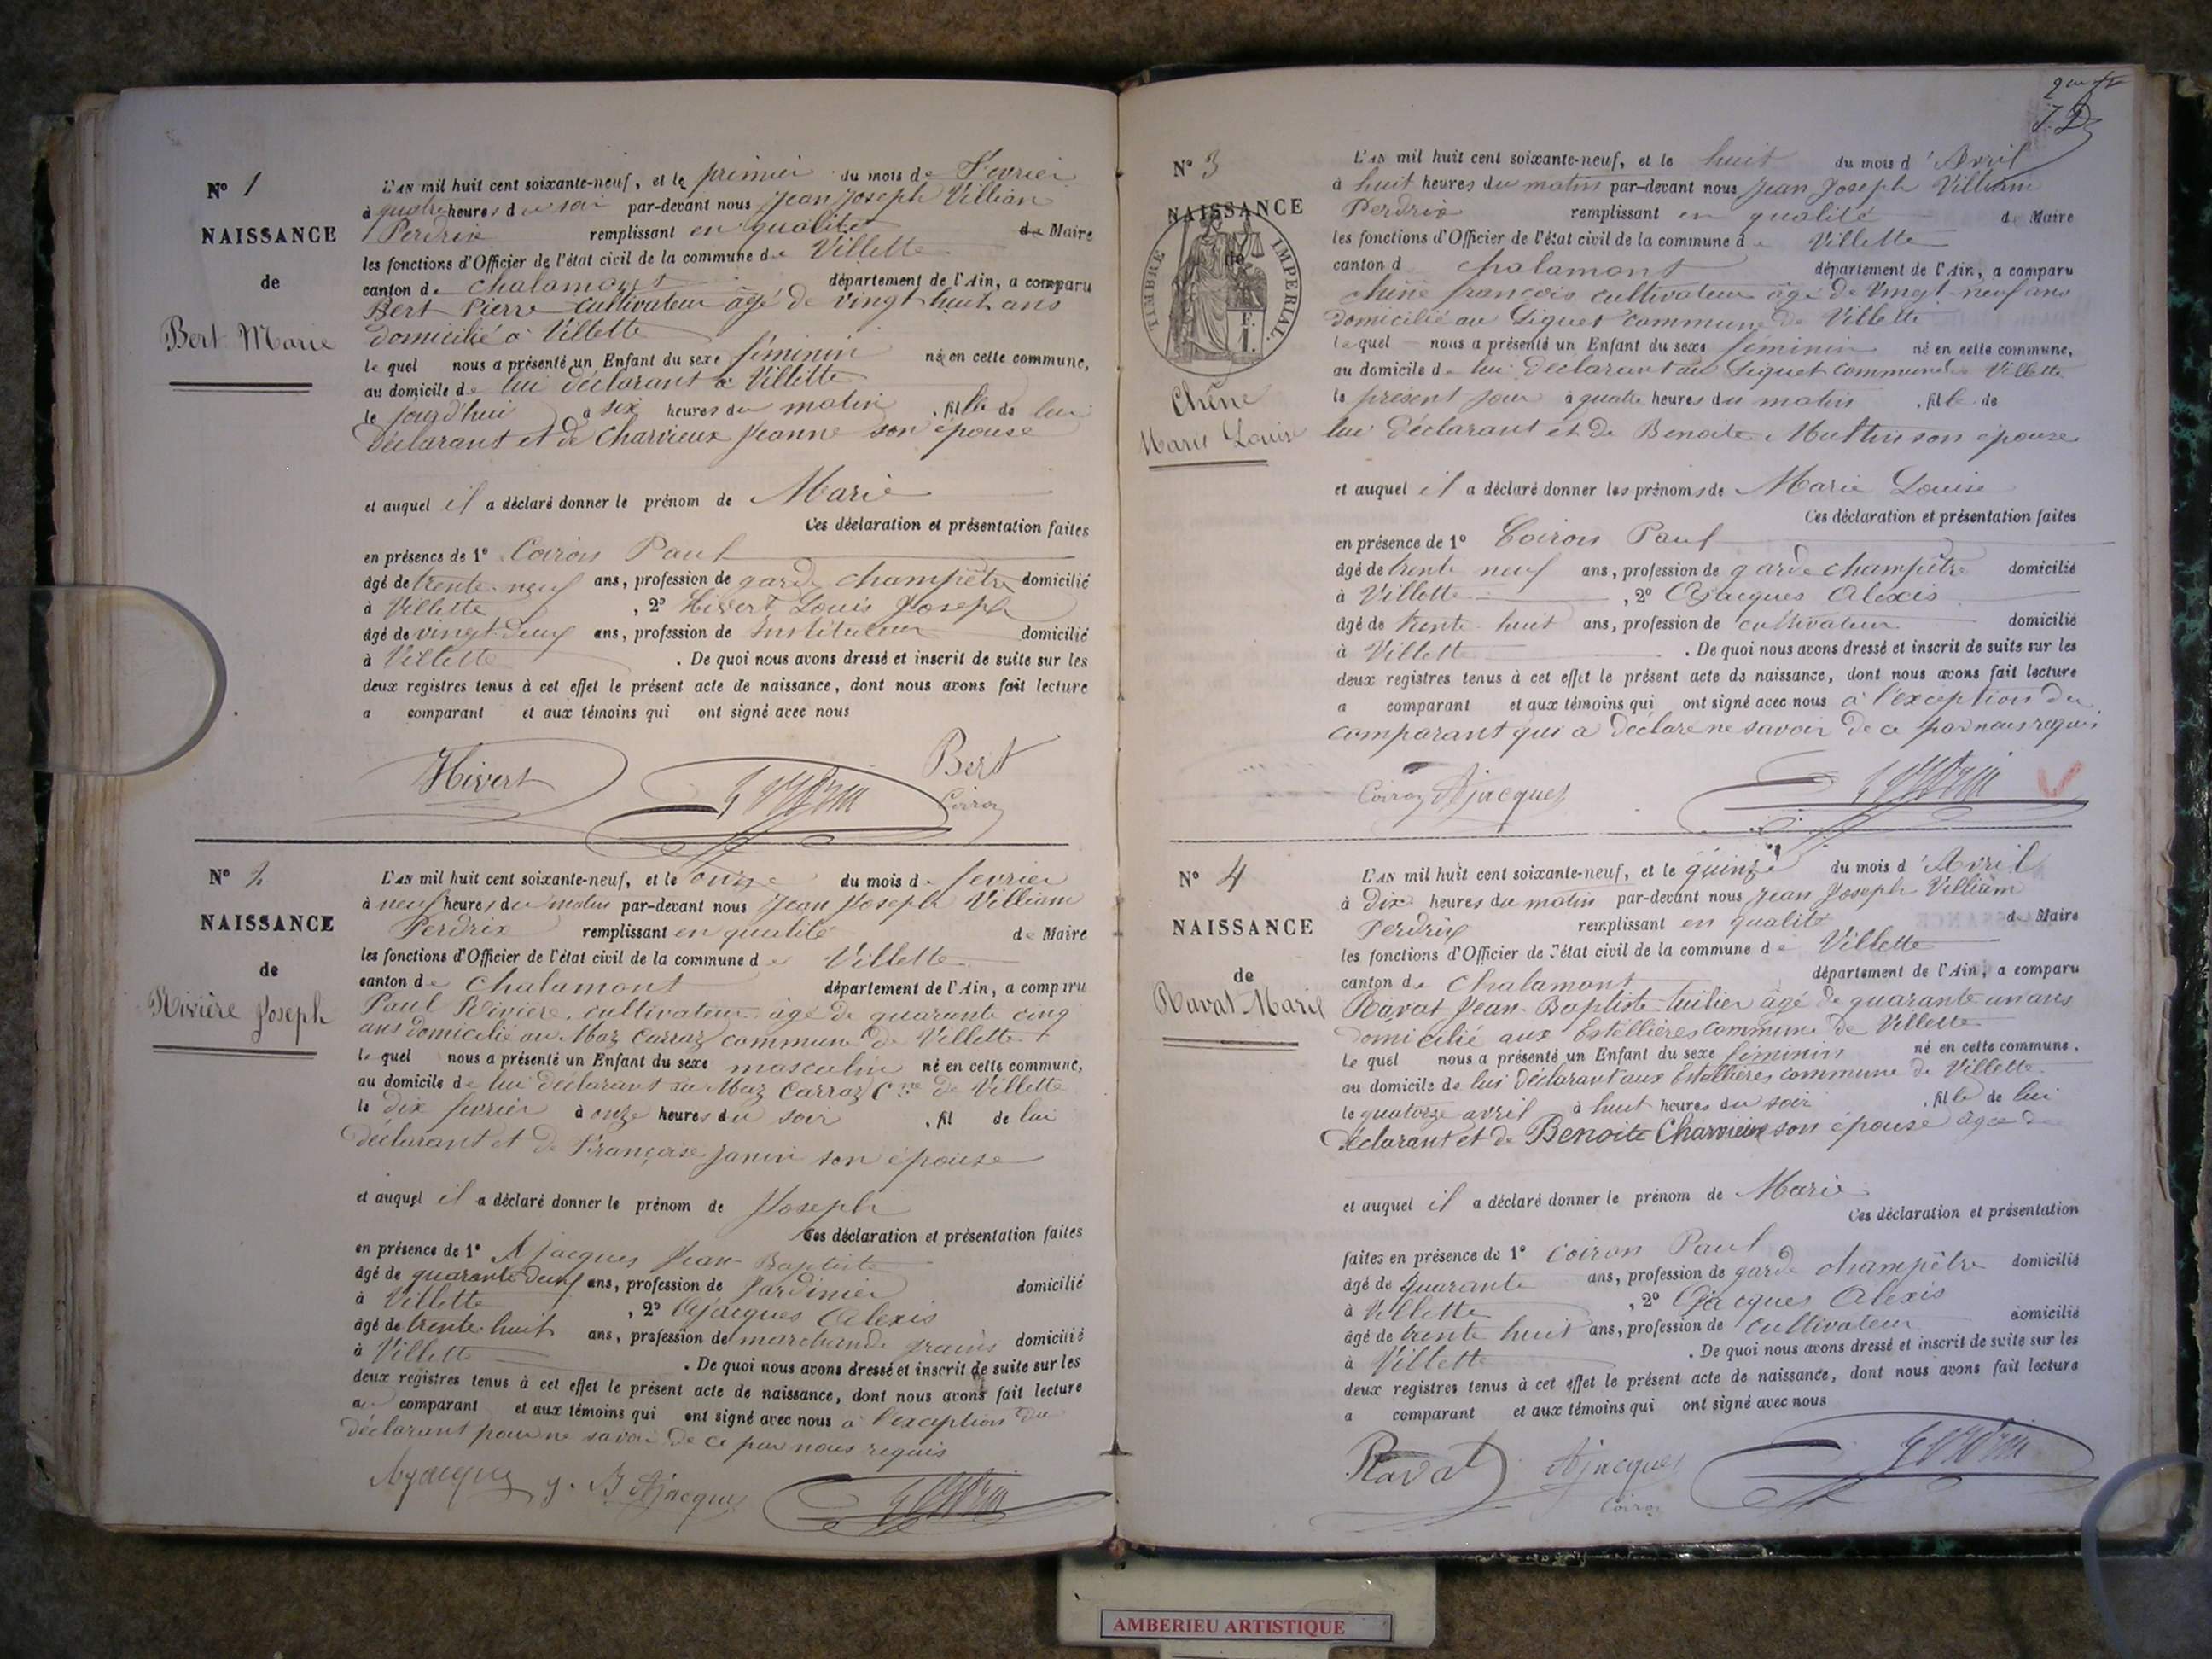 N° 1
NAISSANCE
de
Bert Marie
L'AN mil huit cent soixante-neuf, et le premier du mois de Fevrier
à quatre heures du soir par-devant nous Jean Joseph Villian
Perdrix remplissant en qualité de Maire
les fonctions d'Officier de l'état civil de la commune de Villette
canton de Chalamont département de l'Ain, a comparu
Bert Pierre cultivateur âgé de vingt huit ans
domicilié à Villette
le quel nous a présenté un Enfant du sexe féminin né en cette commune,
au domicile de lui déclarant à Villette
le jourd'hui à six heures du matin, fille de lui
déclarant et de Charvieux Jeanne son épouse
et auquel il a déclaré donner le prénom de Marie
Ces déclaration et présentation faites
en présence de 1° Coiron Paul
âgé de trente-neuf ans, profession de garde champêtre domicilié
à Villette, 2° Hivert Louis Joseph
âgé de vingt-deux ans, profession de Instituteur domicilié
à Villette. De quoi nous avons dressé et inscrit de suite sur les
deux registres tenus à cet effet le présent acte de naissance, dont nous avons fait lecture
a comparant et aux témoins qui ont signé avec nous
Hivert Bert
Coiron
N° 2
NAISSANCE
de
Rivière Joseph
L'AN mil huit cent soixante-neuf, et le onze du mois de fevrier
à neuf heures du matin par-devant nous Jean Joseph Villiam
Perdrix remplissant en qualité de Maire
les fonctions d'Officier de l'état civil de la commune de Villette
canton de Chalamont département de l'Ain, a comparu
Paul Rivière, cultivateur âgé de quarante cinq
ans domicilié au Maz Carraz commune de Villette
le quel nous a présenté un Enfant du sexe masculin né en cette commune,
au domicile de lui déclarant au Maz Carraz Cne de Villette
le dix fevrier à onze heures du soir, fil de lui
déclarant et de Françoise Janin son épouse
et auquel il a déclaré donner le prénom de Joseph
Ces déclaration et présentation faites
en présence de 1° Ajacques Jean-Baptiste
âgé de quarante deux ans, profession de Jardinier domicilié
à Villette, 2° Ajacques Alexis
âgé de trente-huit ans, profession de marchand grains domicilié
à Villette. De quoi nous avons dressé et inscrit de suite sur les
deux registres tenus à cet effet le présent acte de naissance, dont nous avons fait lecture
au comparant et aux témoins qui ont signé avec nous à l'exception du
déclarant pour ne savoir de ce par nous requis
Ajacques J. B Ajacques
N° 3
NAISSANCE
de
TIMBRE IMPERIAL.
Chêne
Marie Louise
L'AN mil huit cent soixante-neuf, et le huit du mois d'Avril
à huit heures du matin par-devant nous Jean Joseph Villiam
Perdrix remplissant en qualité de Maire
les fonctions d'Officier de l'état civil de la commune de Villette
canton d Chalamont département de l'Ain, a comparu
chêne françois cultivateur âgé de vingt-neuf ans
domicilié au Liquet commune de Villette
le quel nous a présenté un Enfant du sexe féminin né en cette commune,
au domicile de lui déclarant au Liquet commune de Villette
le présent jour à quatre heures du matin, fille de
lui déclarant et de Benoite Muttin son épouse
et auquel il a déclaré donner les prénoms de Marie Louise
Ces déclaration et présentation faites
en présence de 1° Coiron Paul
âgé de trente neuf ans, profession de garde champêtre domicilié
à Villette, 2° Ajacques Alexis
âgé de trente-huit ans, profession de cultivateur domicilié
à Villette. De quoi nous avons dressé et inscrit de suite sur les
deux registres tenus à cet effet le présent acte de naissance, dont nous avons fait lecture
a comparant et aux témoins qui ont signé avec nous à l'exception du
comparant qui a déclaré ne savoir de ce par nous requis
Coiron Ajacques
N° 4
NAISSANCE
de
Ravat Marie
L'AN mil huit cent soixante-neuf, et le quinze du mois d'Avril
à dix heures du matin par-devant nous Jean Joseph Villiam
Perdrix remplissant en qualité de Maire
les fonctions d'Officier de l'état civil de la commune de Villette
canton de Chalamont département de l'Ain, a comparu
Ravat Jean-Baptiste tuilier âgé de quarante un ans
domicilié aux Estellières commune de Villette
Le quel nous a présenté un Enfant du sexe féminin né en cette commune,
au domicile de lui déclarant aux Estellières commune de Villette
le quatorze avril à huit heures du soir, fille de lui
déclarant et de Benoite Charvieux son épouse âgée de
et auquel il a déclaré donner le prénom de Marie
Ces déclaration et présentation
faites en présence de 1° Coiron Paul
âgé de quarante ans, profession de garde champêtre domicilié
à Villette, 2° Ajacques Alexis
âgé de trente huit ans, profession de cultivateur domicilié
à Villette. De quoi nous avons dressé et inscrit de suite sur les
deux registres tenus à cet effet le présent acte de naissance, dont nous avons fait lecture
a comparant et aux témoins qui ont signé avec nous
Ravat Ajacques
Coiron
AMBERIEU ARTISTIQUE